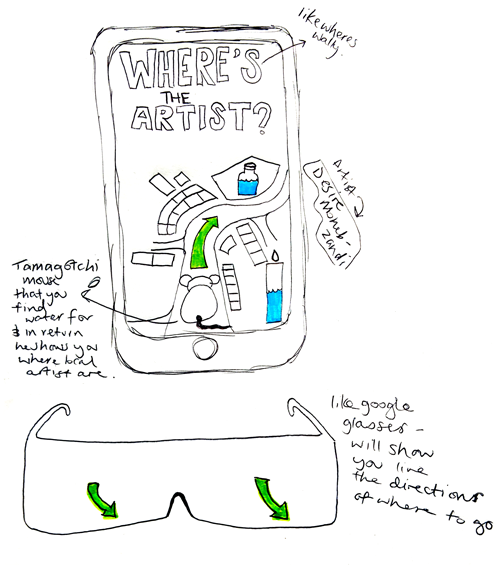 like wheres
wally.
WHERE'S
THE
ARTIST?
Artist
Desire
Tamagotchi
mouse
that you
find
water for
& in return
he shows you
where local
artist are.
like google
glasses -
will show
you live
the directions
of where to go